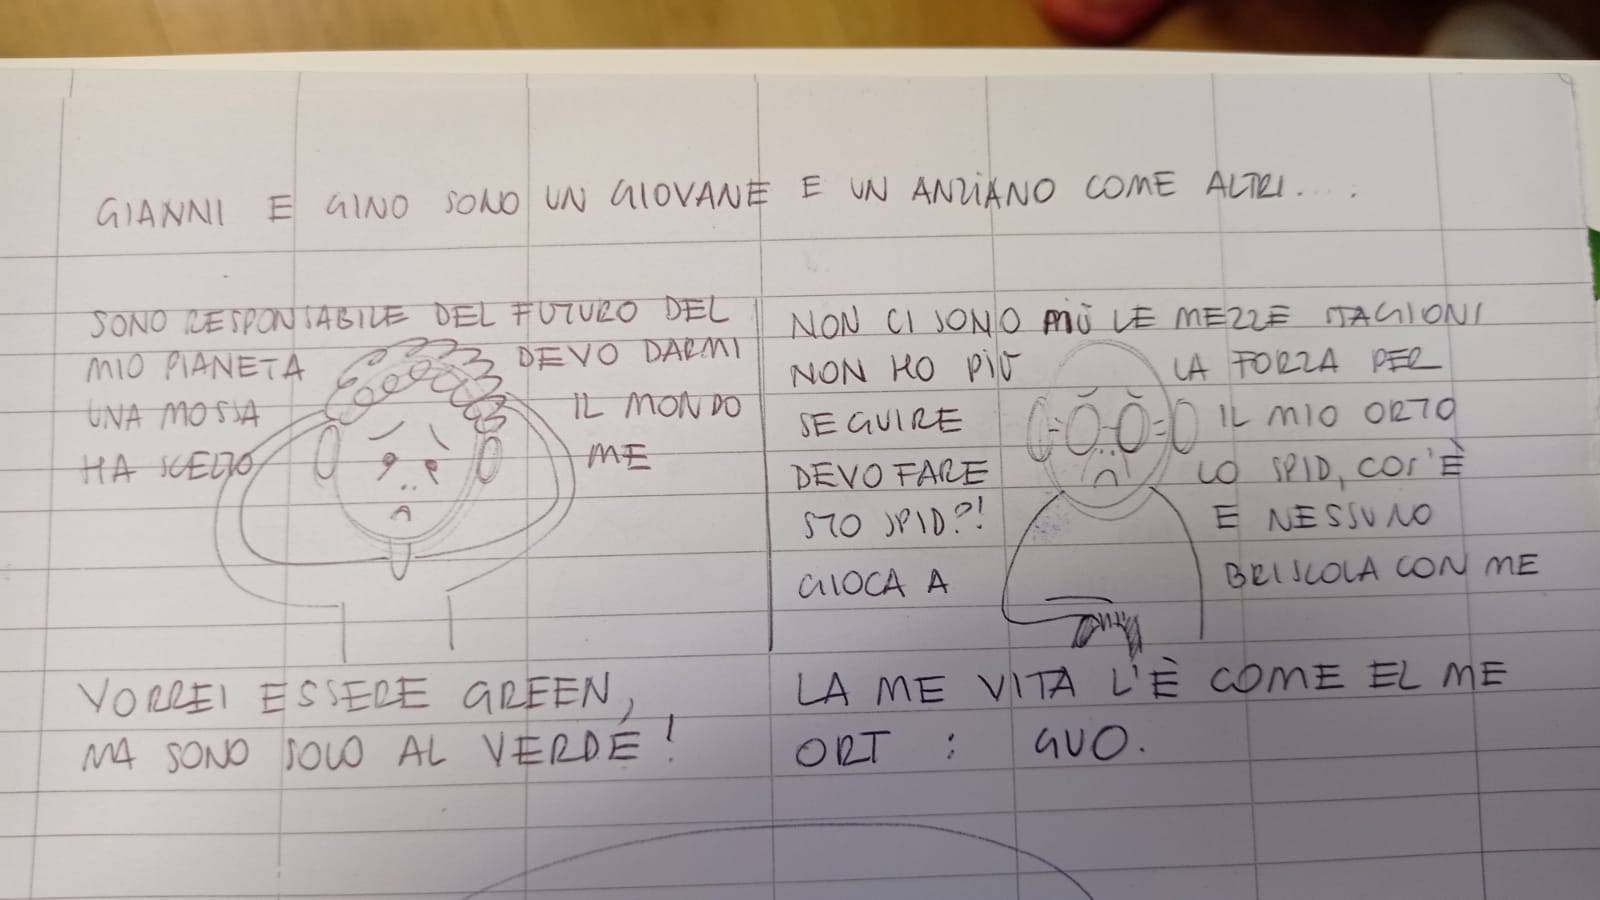 GIANNI E GINO SONO UN GIOVANE E UN ANZIANO COME ALTRI.....
SONO RESPONSABILE DEL FUTURO DEL
MIO PIANETA DEVO DARMI
UNA MOSSA IL MONDO
HA SCELTO ME
VORREI ESSERE GREEN,
MA SONO SOLO AL VERDE!
NON CI SONO PIÙ LE MEZZE STAGIONI
NON HO PIÙ LA FORZA PER
SEGUIRE IL MIO ORTO
DEVO FARE LO SPID, COS'È
STO SPID?! E NESSUNO
GIOCA A BRISCOLA CON ME
LA ME VITA L'È COME EL ME
ORT : GUO.